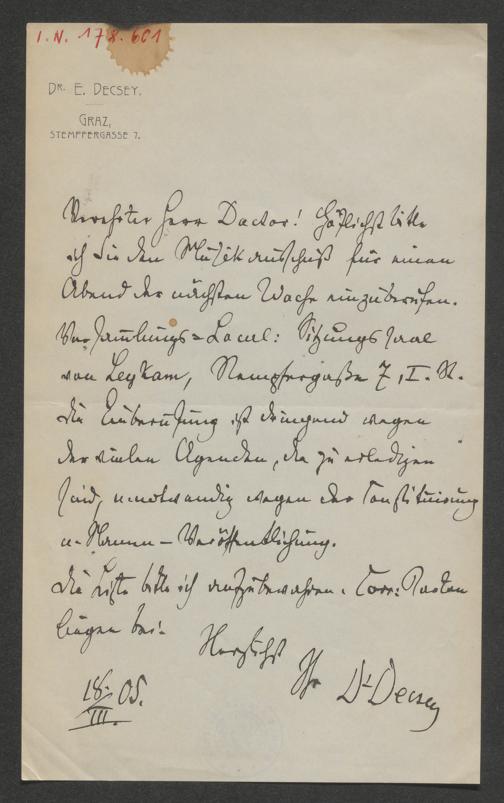 I.N. 178.601
DR. E. DECSEY.
GRAZ,
STEMPFERGASSE 7.
Verehrter Herr Doctor! Höflichst bitte
ich Sie den Musikausschuß für einen
Abend der nächsten Woche einzuberufen.
Versammlungs=Local: Sitzungssaal
von Leykam, Stempfergaße 7, I. St.
Die Einberufung ist dringend wegen
der vielen Agenden, die zu erledigen
sind, u. notwendig wegen der Constituirung
u. Namen-Veröffentlichung.
Die Liste bitte ich aufzubewahren. Corr: Karten
liegen bei.
Herzlichst
Ihr Dr Decsey
18./III. 05.